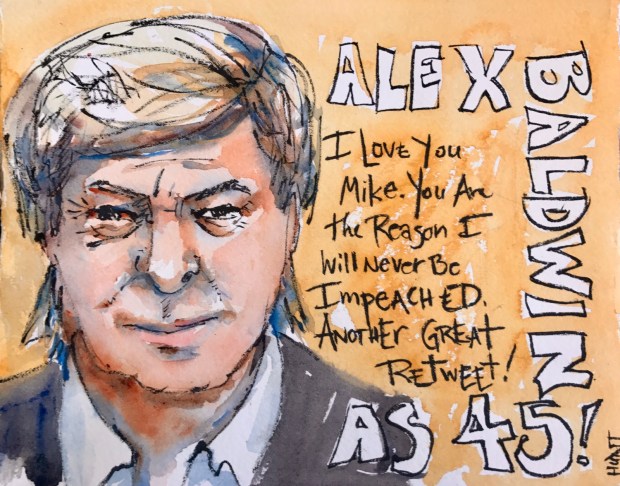 ALEX
BALDWIN
I Love You
Mike. You Are
the Reason I
Will Never Be
ImpeachEd.
AnothEr Great
RETWEET!
AS 45!